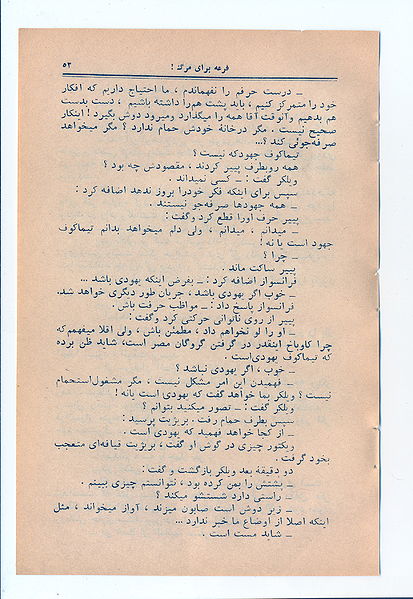 قرعه برای مرگ ! ۵۳
ــ درست حرفم را نفهماندم ، ما احتیاج داریم که افکار
خود را متمرکز کنیم ، باید پشت هم را داشته باشیم ، دست بدست
هم بدهیم و آنوقت آقا همه را میگذارد و میرود دوش بگیرد ! ابتکار
صحیح نیست . مگر درخانهٔ خودش حمام ندارد ؟ مگر میخواهد
صرفه‌جوئی کند ؟...
تیماکوف جهودکه نیست ؟
همه روبطرف پییر کردند ، مقصودش چه بود ؟
ویلکر گفت : ــ کسی نمیداند .
سپس برای اینکه فکر خودرا بروز ندهد اضافه کرد :
ــ همه جهودها صرفه‌جو نیستند .
پییر حرف اورا قطع کرد و گفت :
ــ میدانم ، میدانم ، ولی دلم میخواهد بدانم تیماکوف
جهود است یا نه !
ــ چرا ؟
پییر ساکت ماند .
فرانسواز اضافه کرد : ــ بفرض اینکه یهودی باشد ...
ــ خوب اگر یهودی باشد ، جریان طور دیگری خواهد شد.
فرانسواز پاسخ داد : ــ مواظب حرفت باش .
پییر از روی ناتوانی حرکتی کرد و گفت :
ــ او را لو نخواهم داد ، مطمئن باش ، ولی اقلا میفهمم که
چرا کاوباخ اینقدر در گرفتن گروگان مصر است، شاید ظن برده
که تیماکوف یهودی‌است .
ــ خوب ، اگر یهودی نباشد ؟
ــ فهمیدن این امر مشکل نیست ، مگر مشغول‌استحمام
نیست ؟ ویلکر بما خواهد گفت که یهودی است یانه !
ویلکر گفت : ــ تصور میکنید بتوانم ؟
سپس بطرف حمام رفت . بریژیت پرسید :
ــ از کجا خواهد فهمید که یهودی است .
ریکتور چیزی در گوش او گفت ، بریژیت قیافه‌ای متعجب
بخود گرفت .
دو دقیقه بعد ویلکر بازگشت و گفت :
ــ پشتش را بمن کرده بود ، نتوانستم چیزی ببینم .
ــ راستی دارد شستشو میکند ؟
ــ زیر دوش است صابون میزند ، آواز میخواند ، مثل
اینکه اصلا از اوضاع ما خبر ندارد ...
ــ شاید مست است .